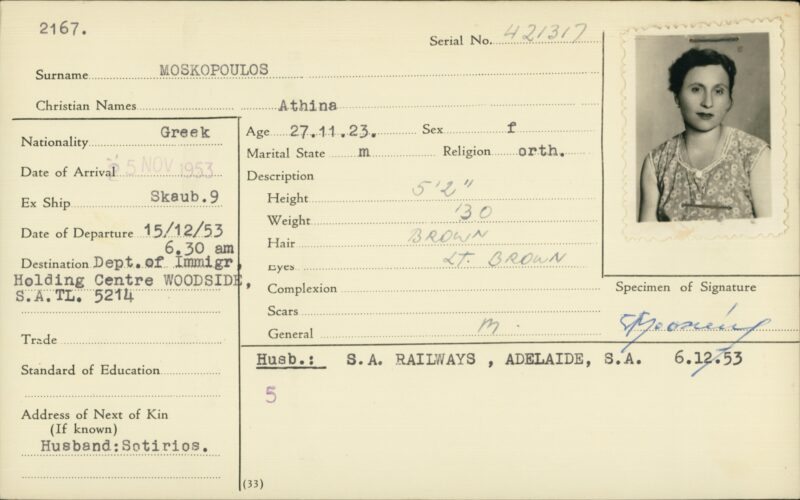 2167.
Serial No. 421317
Surname MOSKOPOULOS
Christian Names Athina
Nationality Greek
Date of Arrival 5 NOV 1953
Ex Ship Skaub.9
Date of Departure 15/12/53
6.30 am
Destination Dept.of Immigr,
Holding Centre WOODSIDE,
S.A.TL. 5214
Trade
Standard of Education
Address of Next of Kin
(If known)
Husband:Sotirios.
Age 27.11.23. Sex f
Marital State m Religion orth.
Description
Height 5'2"
Weight 130
Hair BROWN
Eyes LT. BROWN
Complexion
Scars
General M.
Specimen of Signature
Husb.: S.A. RAILWAYS , ADELAIDE, S.A. 6.12.53
5
(33)